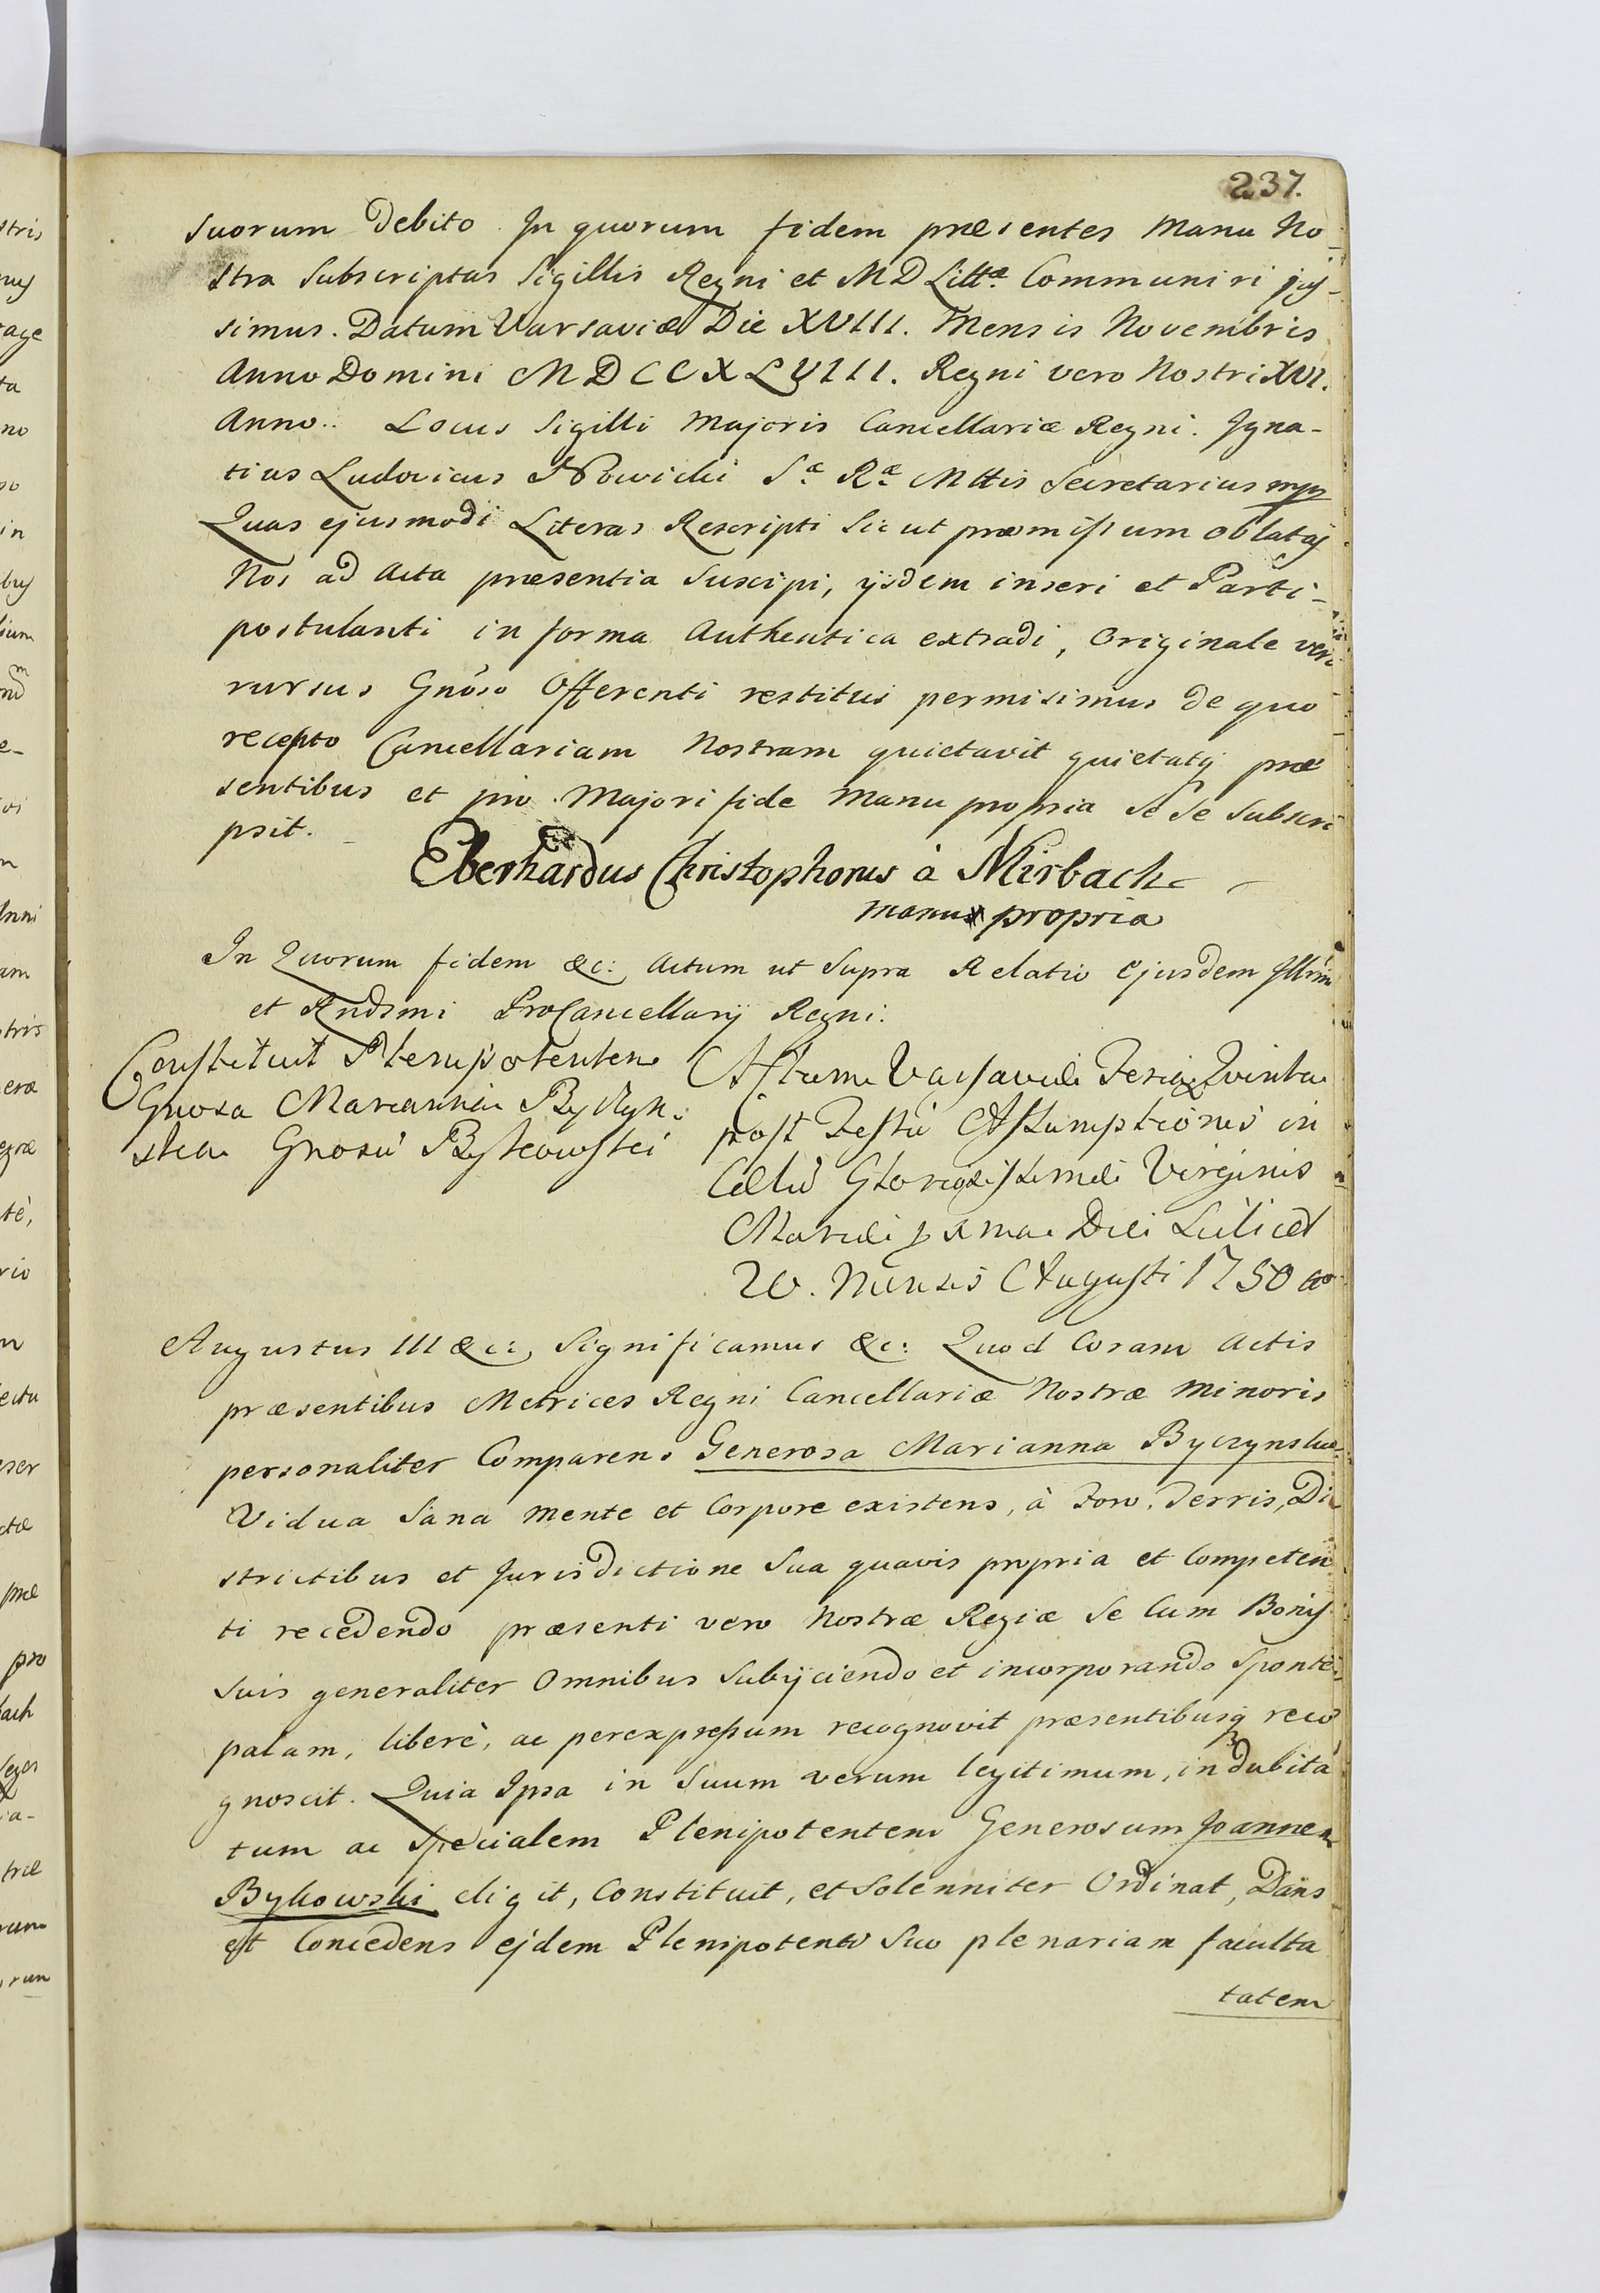 237.
suorum Debito. In quorum fidem præsentes Manu No-
stra Subscriptas Sigillis Regni et M D Littæ Communiri jus-
simus. Datum Varsaviæ Die XVIII. Mensis Novembris
Anno Domini MDCCXLVIII. Regni vero Nostri XVI.
Anno. Locus Sigilli Majoris Cancellariæ Regni. Igna-
tius Ludovicus Nowicki Sæ Ræ Mttis Secretarius mpp
Quas ejusmodi Literas Rescripti Sic ut præmissum oblatas
Nos ad Acta præsentia Suscipi, ijsdem inseri et Parti-
postulanti in forma Authentica extradi, Originale vero
rursus Gnoso Offerenti restitui permisimus de quo
recepto Cancellariam Nostram quietavit quietatq præ
sentibus et pro Majori fide Manu propria Se Se Subscri
psit.
Eberhardus Christophorus à Mirbach
manu propria
In Quorum fidem &c: Actum ut Supra Relatio Ejusdem Illrmi
et Rndsmi ProCancellarij Regni.
Constituit Plenipotentem
Gnosa Marianna Byczyn-
ska Gnosu Bykowski
Actum Varsaviæ Feria Quinta
post Festu Assumptionis in
Cælu Gloriosissimæ Virginis
Mariæ
Scilicet
20. Mensis Augusti 1750
Augustus III &c: Significamus &c: Quod Coram Actis
præsentibus Metrices Regni Cancellariæ Nostræ Minoris
personaliter Comparens Generosa Marianna Byczynska
Vidua Sana Mente et Corpore existens, à Foro, Terris, Di
strictibus et Jurisdictione Sua quavis propria et Competen
ti recedendo præsenti vero Nostræ Regiæ Se Cum Bonis
Suis generaliter Omnibus Subijciendo et incorporando Sponte
palam, liberè, ac perexpressum recognovit præsentibusq reco
gnoscit. Quia Ipsa in Suum verum legitimum, indubita
tum ac Specialem Plenipotentem Generosum Joannem
Bykowski eligit, Constituit, et Solenniter Ordinat, Dans
et Concedens ejdem Plenipotenti Suo plenariam faculta
tatem